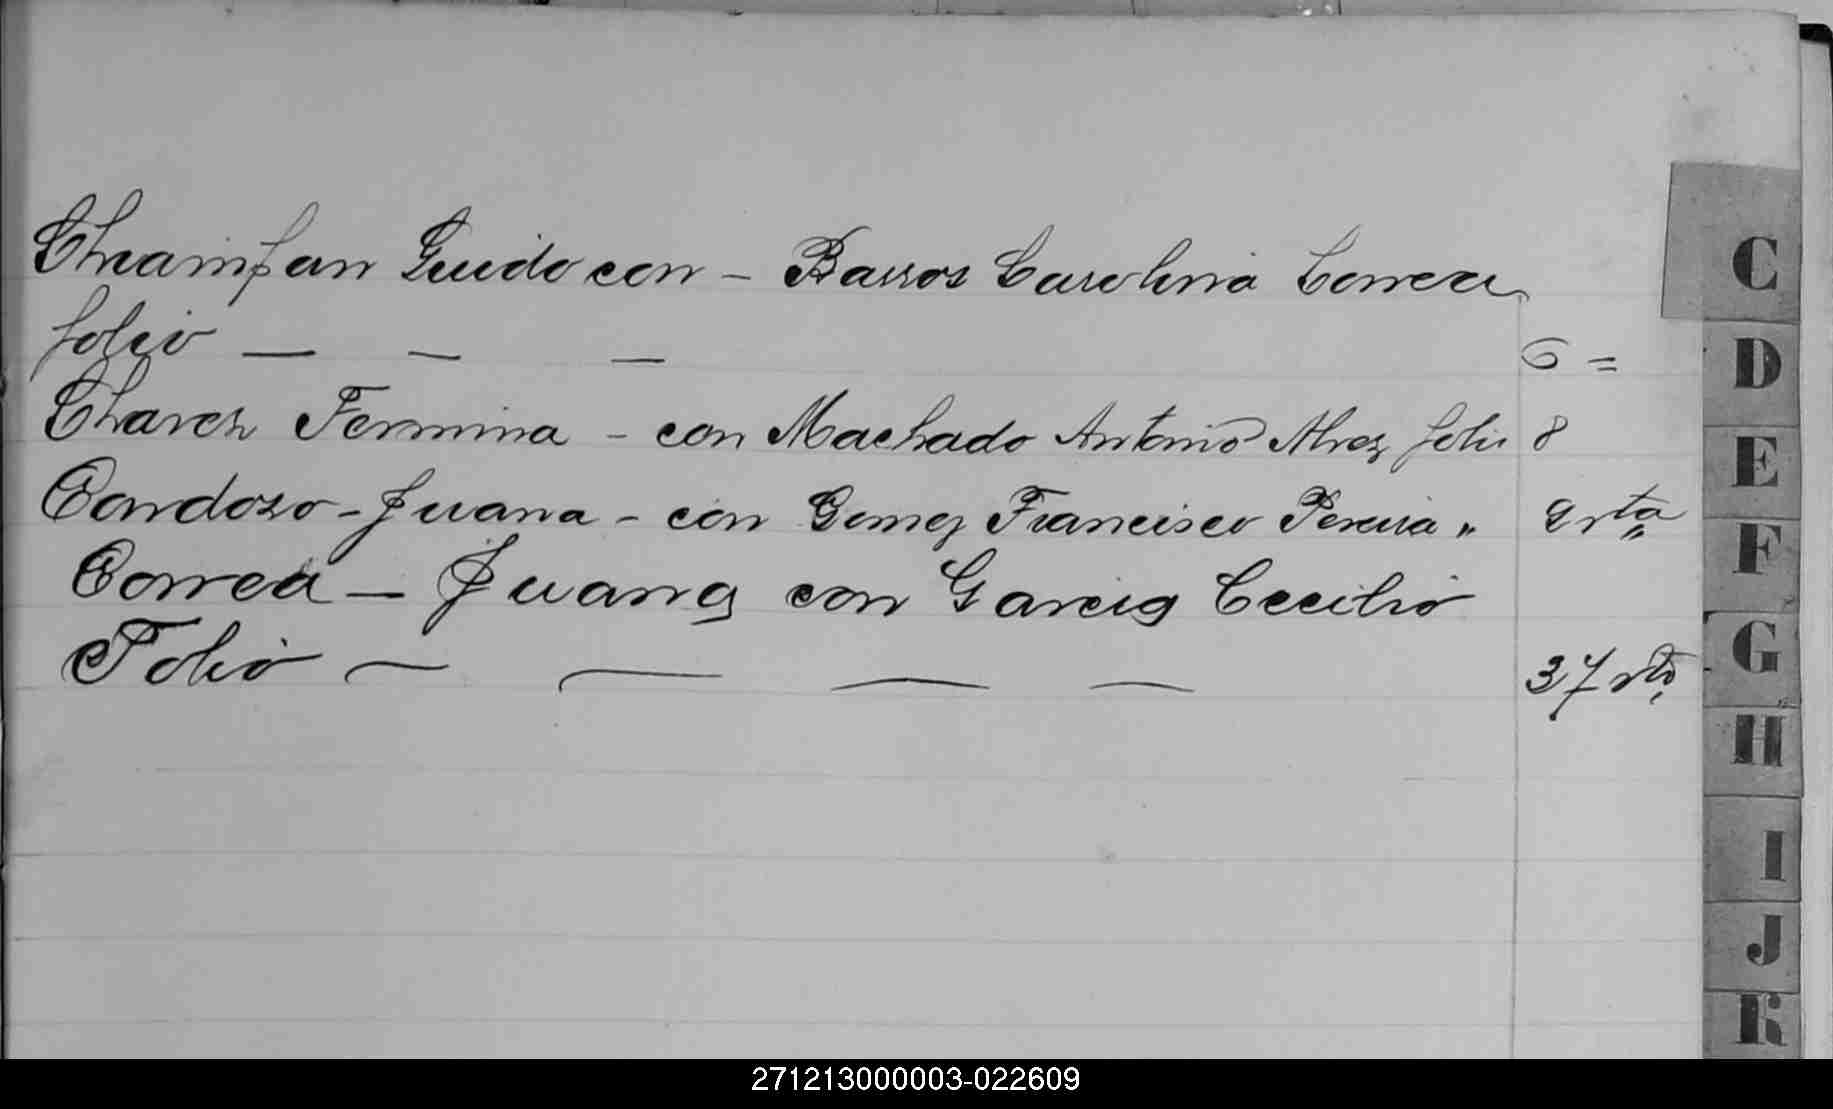 Chamfan Guido con – Barros Carolina Correa
folio — — — 6 =
Chavez Fermina – con Machado Antonio Alvez folio 8
Cardozo – Juana – con Gomez Francisco Pereira „ 9 vta
Correa — Juana con Garcia Cecilio
Folio — — — — 37 vto
C
D
E
F
G
H
I
J
K
271213000003-022609